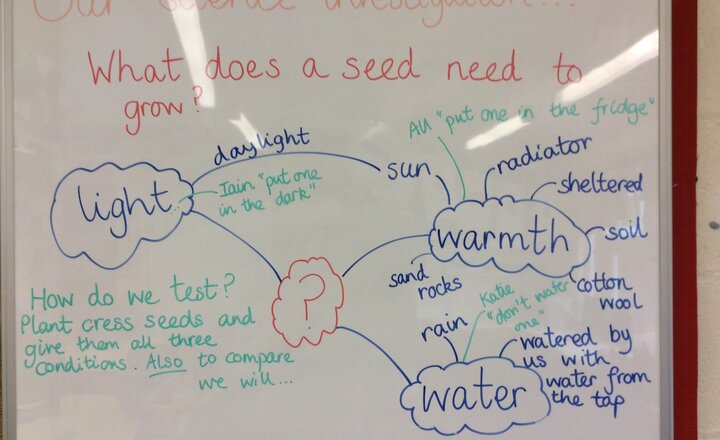 Our science investigation...
What does a seed need to
grow?
daylight
sun
All "put one in the fridge"
radiator
sheltered
light
Iain "put one
in the dark"
warmth
soil
sand
rocks
cotton
wool
?
Katie
"don't water
one"
rain
watered by
us with
water from
the tap
water
How do we test?
Plant cress seeds and
give them all three
conditions. Also to compare
we will...